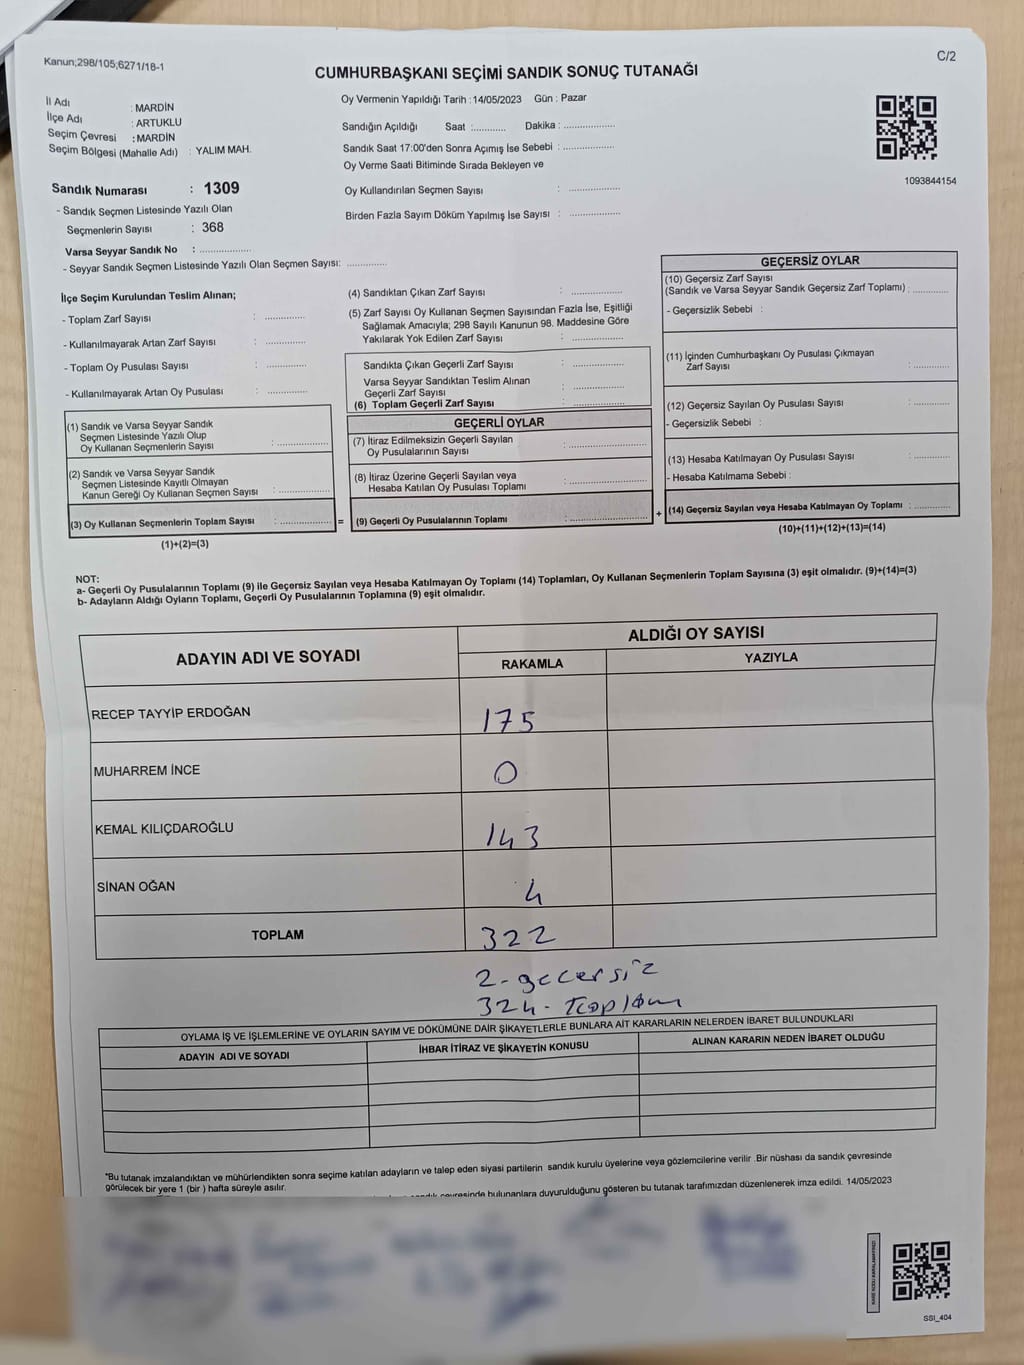 Kanun;298/105;6271/18-1
C/2
CUMHURBAŞKANI SEÇİMİ SANDIK SONUÇ TUTANAĞI
İl Adı : MARDİN
İlçe Adı : ARTUKLU
Seçim Çevresi : MARDİN
Seçim Bölgesi (Mahalle Adı) : YALIM MAH.
Sandık Numarası : 1309
- Sandık Seçmen Listesinde Yazılı Olan
Seçmenlerin Sayısı : 368
Varsa Seyyar Sandık No : ................
- Seyyar Sandık Seçmen Listesinde Yazılı Olan Seçmen Sayısı: ............
Oy Vermenin Yapıldığı Tarih :14/05/2023 Gün : Pazar
Sandığın Açıldığı Saat :........... Dakika : ................
Sandık Saat 17:00'den Sonra Açımış İse Sebebi : ................
Oy Verme Saati Bitiminde Sırada Bekleyen ve
Oy Kullandırılan Seçmen Sayısı : ................
Birden Fazla Sayım Döküm Yapılmış İse Sayısı : ................
1093844154
İlçe Seçim Kurulundan Teslim Alınan;
- Toplam Zarf Sayısı : ............
- Kullanılmayarak Artan Zarf Sayısı : ............
- Toplam Oy Pusulası Sayısı : ............
- Kullanılmayarak Artan Oy Pusulası : ............
(1) Sandık ve Varsa Seyyar Sandık
Seçmen Listesinde Yazılı Olup
Oy Kullanan Seçmenlerin Sayısı : ................
(2) Sandık ve Varsa Seyyar Sandık
Seçmen Listesinde Kayıtlı Olmayan
Kanun Gereği Oy Kullanan Seçmen Sayısı : ................
(3) Oy Kullanan Seçmenlerin Toplam Sayısı : ................
(1)+(2)=(3)
=
(4) Sandıktan Çıkan Zarf Sayısı : ................
(5) Zarf Sayısı Oy Kullanan Seçmen Sayısından Fazla İse, Eşitliği
Sağlamak Amacıyla; 298 Sayılı Kanunun 98. Maddesine Göre
Yakılarak Yok Edilen Zarf Sayısı : ................
Sandıkta Çıkan Geçerli Zarf Sayısı : ................
Varsa Seyyar Sandıktan Teslim Alınan
Geçerli Zarf Sayısı : ................
(6) Toplam Geçerli Zarf Sayısı : ................
GEÇERLİ OYLAR
(7) İtiraz Edilmeksizin Geçerli Sayılan
Oy Pusulalarının Sayısı : ................
(8) İtiraz Üzerine Geçerli Sayılan veya
Hesaba Katılan Oy Pusulası Toplamı : ................
(9) Geçerli Oy Pusulalarının Toplamı : ................
+
GEÇERSİZ OYLAR
(10) Geçersiz Zarf Sayısı
(Sandık ve Varsa Seyyar Sandık Geçersiz Zarf Toplamı) : ............
- Geçersizlik Sebebi :
(11) İçinden Cumhurbaşkanı Oy Pusulası Çıkmayan
Zarf Sayısı : ............
(12) Geçersiz Sayılan Oy Pusulası Sayısı : ............
- Geçersizlik Sebebi :
(13) Hesaba Katılmayan Oy Pusulası Sayısı : ............
- Hesaba Katılmama Sebebi :
(14) Geçersiz Sayılan veya Hesaba Katılmayan Oy Toplamı : ............
(10)+(11)+(12)+(13)=(14)
NOT:
a- Geçerli Oy Pusulalarının Toplamı (9) ile Geçersiz Sayılan veya Hesaba Katılmayan Oy Toplamı (14) Toplamları, Oy Kullanan Seçmenlerin Toplam Sayısına (3) eşit olmalıdır. (9)+(14)=(3)
b- Adayların Aldığı Oyların Toplamı, Geçerli Oy Pusulalarının Toplamına (9) eşit olmalıdır.
ADAYIN ADI VE SOYADI
ALDIĞI OY SAYISI
RAKAMLA YAZIYLA
RECEP TAYYİP ERDOĞAN 175
MUHARREM İNCE 0
KEMAL KILIÇDAROĞLU 143
SİNAN OĞAN 4
TOPLAM 322
2 - geçersiz
324 - Toplam
OYLAMA İŞ VE İŞLEMLERİNE VE OYLARIN SAYIM VE DÖKÜMÜNE DAİR ŞİKAYETLERLE BUNLARA AİT KARARLARIN NELERDEN İBARET BULUNDUKLARI
ADAYIN ADI VE SOYADI İHBAR İTİRAZ VE ŞİKAYETİN KONUSU ALINAN KARARIN NEDEN İBARET OLDUĞU
*Bu tutanak imzalandıktan ve mühürlendikten sonra seçime katılan adayların ve talep eden siyasi partilerin sandık kurulu üyelerine veya gözlemcilerine verilir .Bir nüshası da sandık çevresinde
görülecek bir yere 1 (bir ) hafta süreyle asılır.
sandık çevresinde bulunanlara duyurulduğunu gösteren bu tutanak tarafımızdan düzenlenerek imza edildi. 14/05/2023
SSI_404